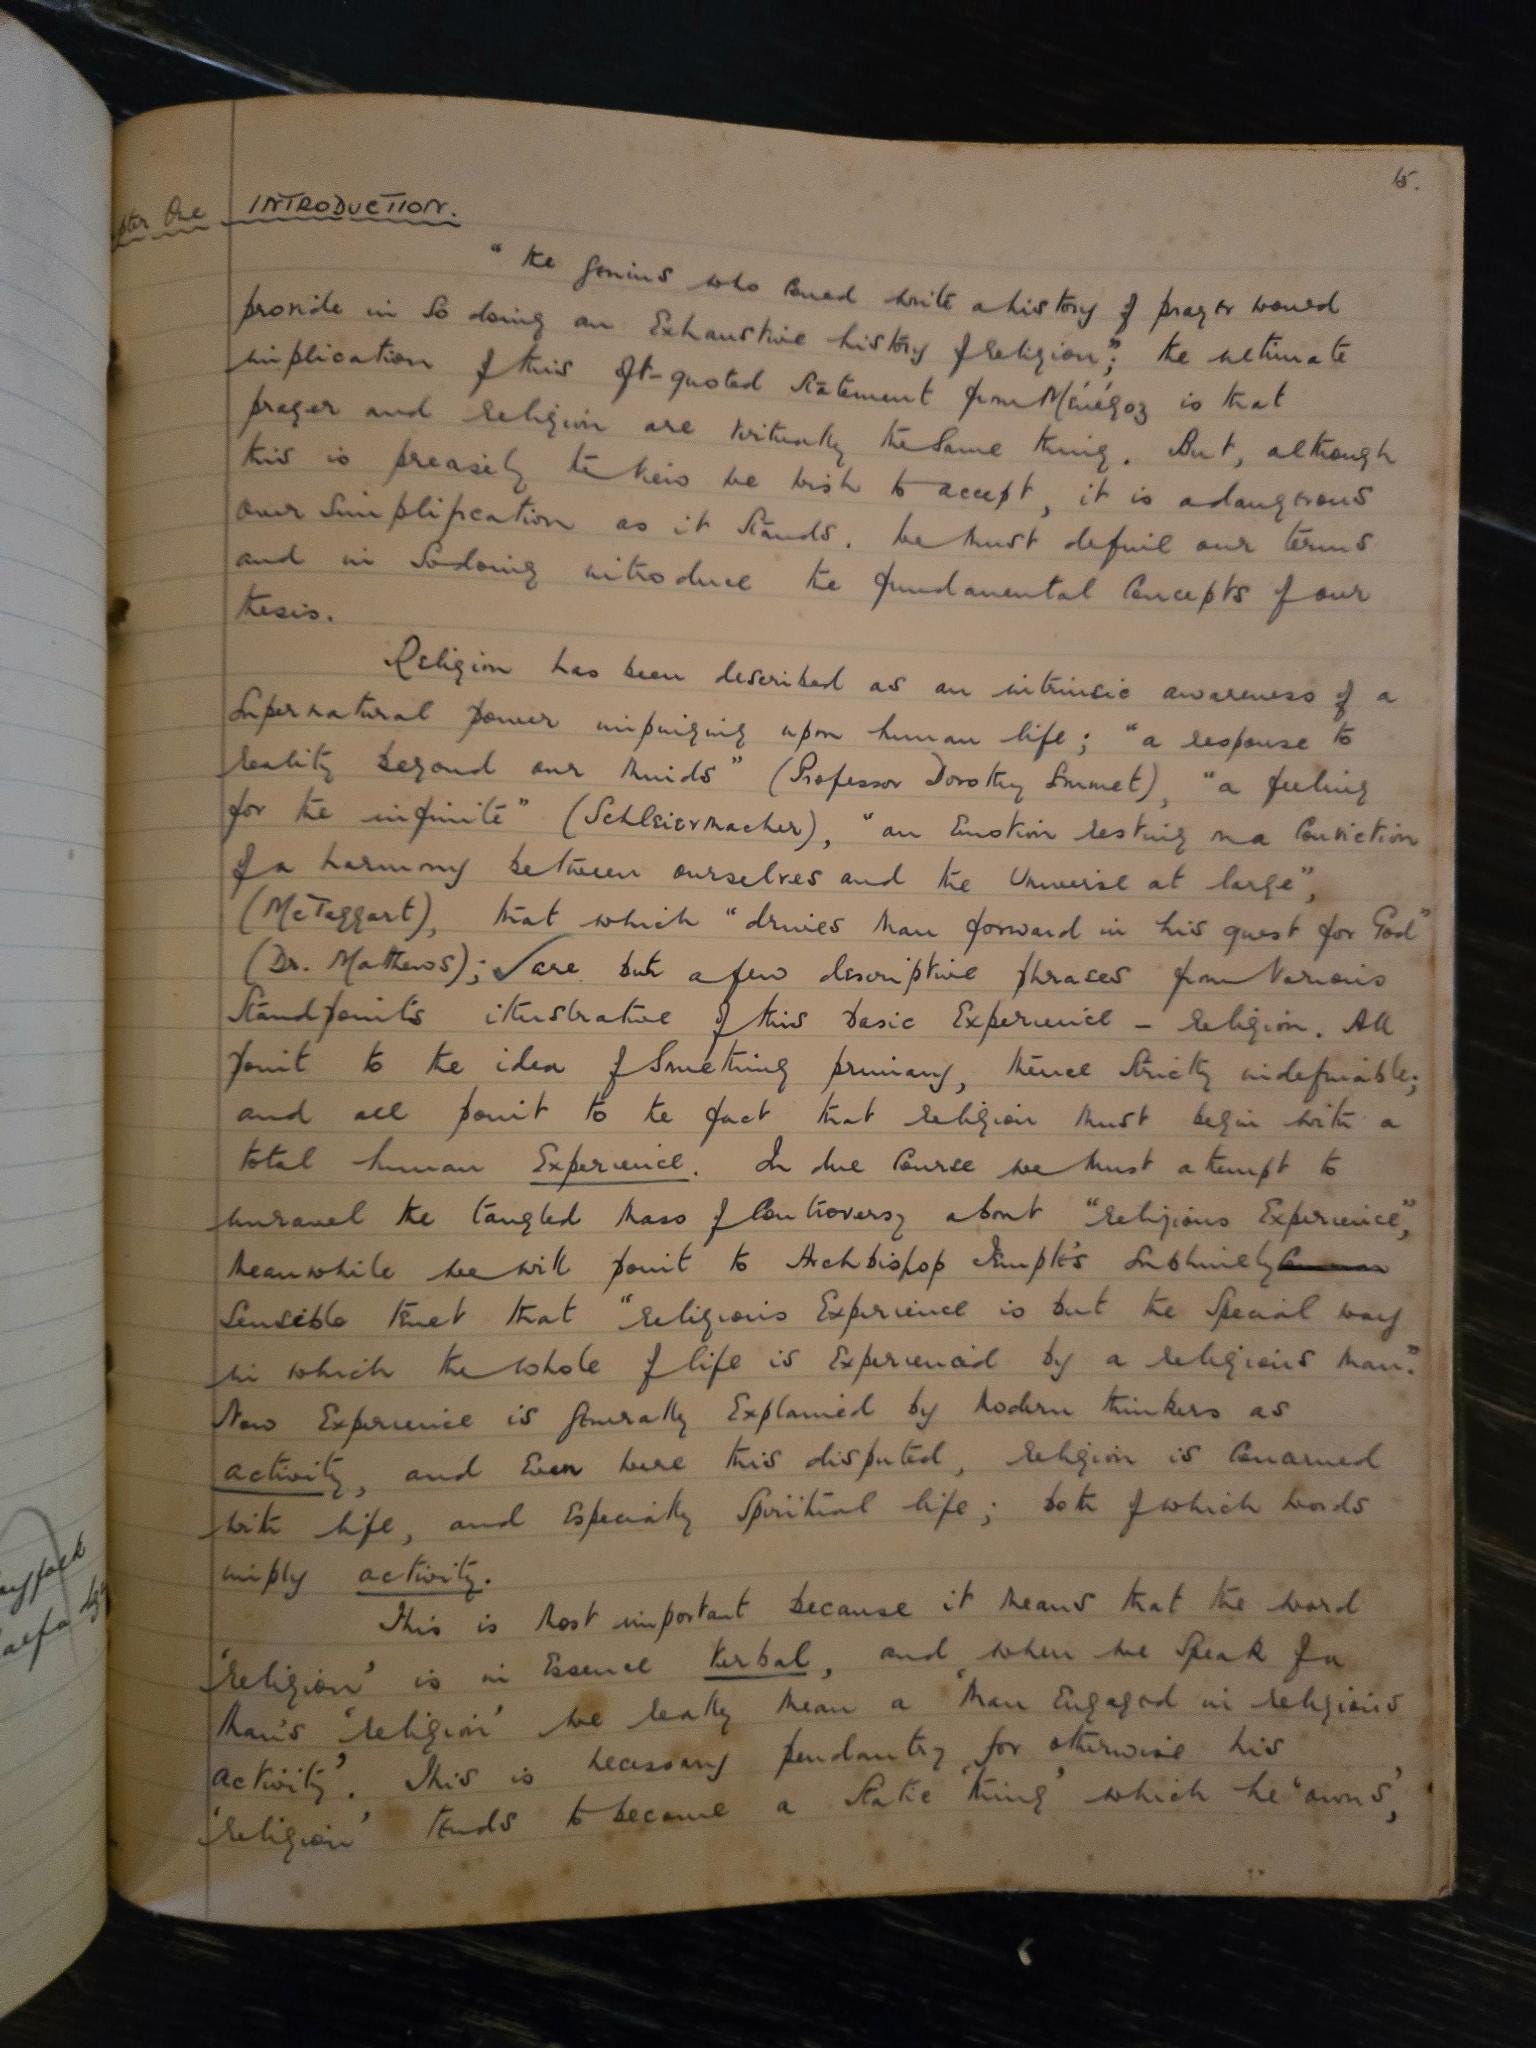 Chapter One INTRODUCTION.
15.
"the genius who could write a history of prayer would
provide in so doing an Exhaustive history of religion"; the ultimate
implication of this oft-quoted statement from Ménégoz is that
prayer and religion are virtually the same thing. But, although
this is precisely the view we wish to accept, it is a dangerous
over simplification as it stands. We must define our terms
and in so doing introduce the fundamental concepts of our
thesis.
Religion has been described as an intrinsic awareness of a
Supernatural power impinging upon human life; "a response to
reality beyond our minds" (Professor Dorothy Emmet), "a feeling
for the infinite" (Schleiermacher), "an Emotion resting on a Conviction
of a harmony between ourselves and the Universe at large",
(McTaggart), that which "drives man forward in his quest for God"
(Dr. Matthews); ✓are but a few descriptive phrases from various
Standpoints illustrative of this basic Experience - religion. All
point to the idea of Something primary, hence strictly indefinable;
and all point to the fact that religion must begin with a
total human Experience. In due course we must attempt to
unravel the tangled mass of Controversy about "religious Experience",
Meanwhile we will point to Archbishop Temple's Sublimely
Sensible tenet that "religious Experience is but the Special way
in which the whole of life is Experienced by a religious man."
Now Experience is generally Explained by modern thinkers as
activity, and Even were this disputed, religion is Concerned
with life, and Especially Spiritual life; both of which words
imply activity.
This is most important because it means that the word
'religion' is in Essence Verbal, and when we Speak of a
man's 'religion' we really mean a 'man Engaged in religious
activity'. This is necessary pendantry for otherwise his
'religion' tends to become a Static 'thing' which he 'owns',